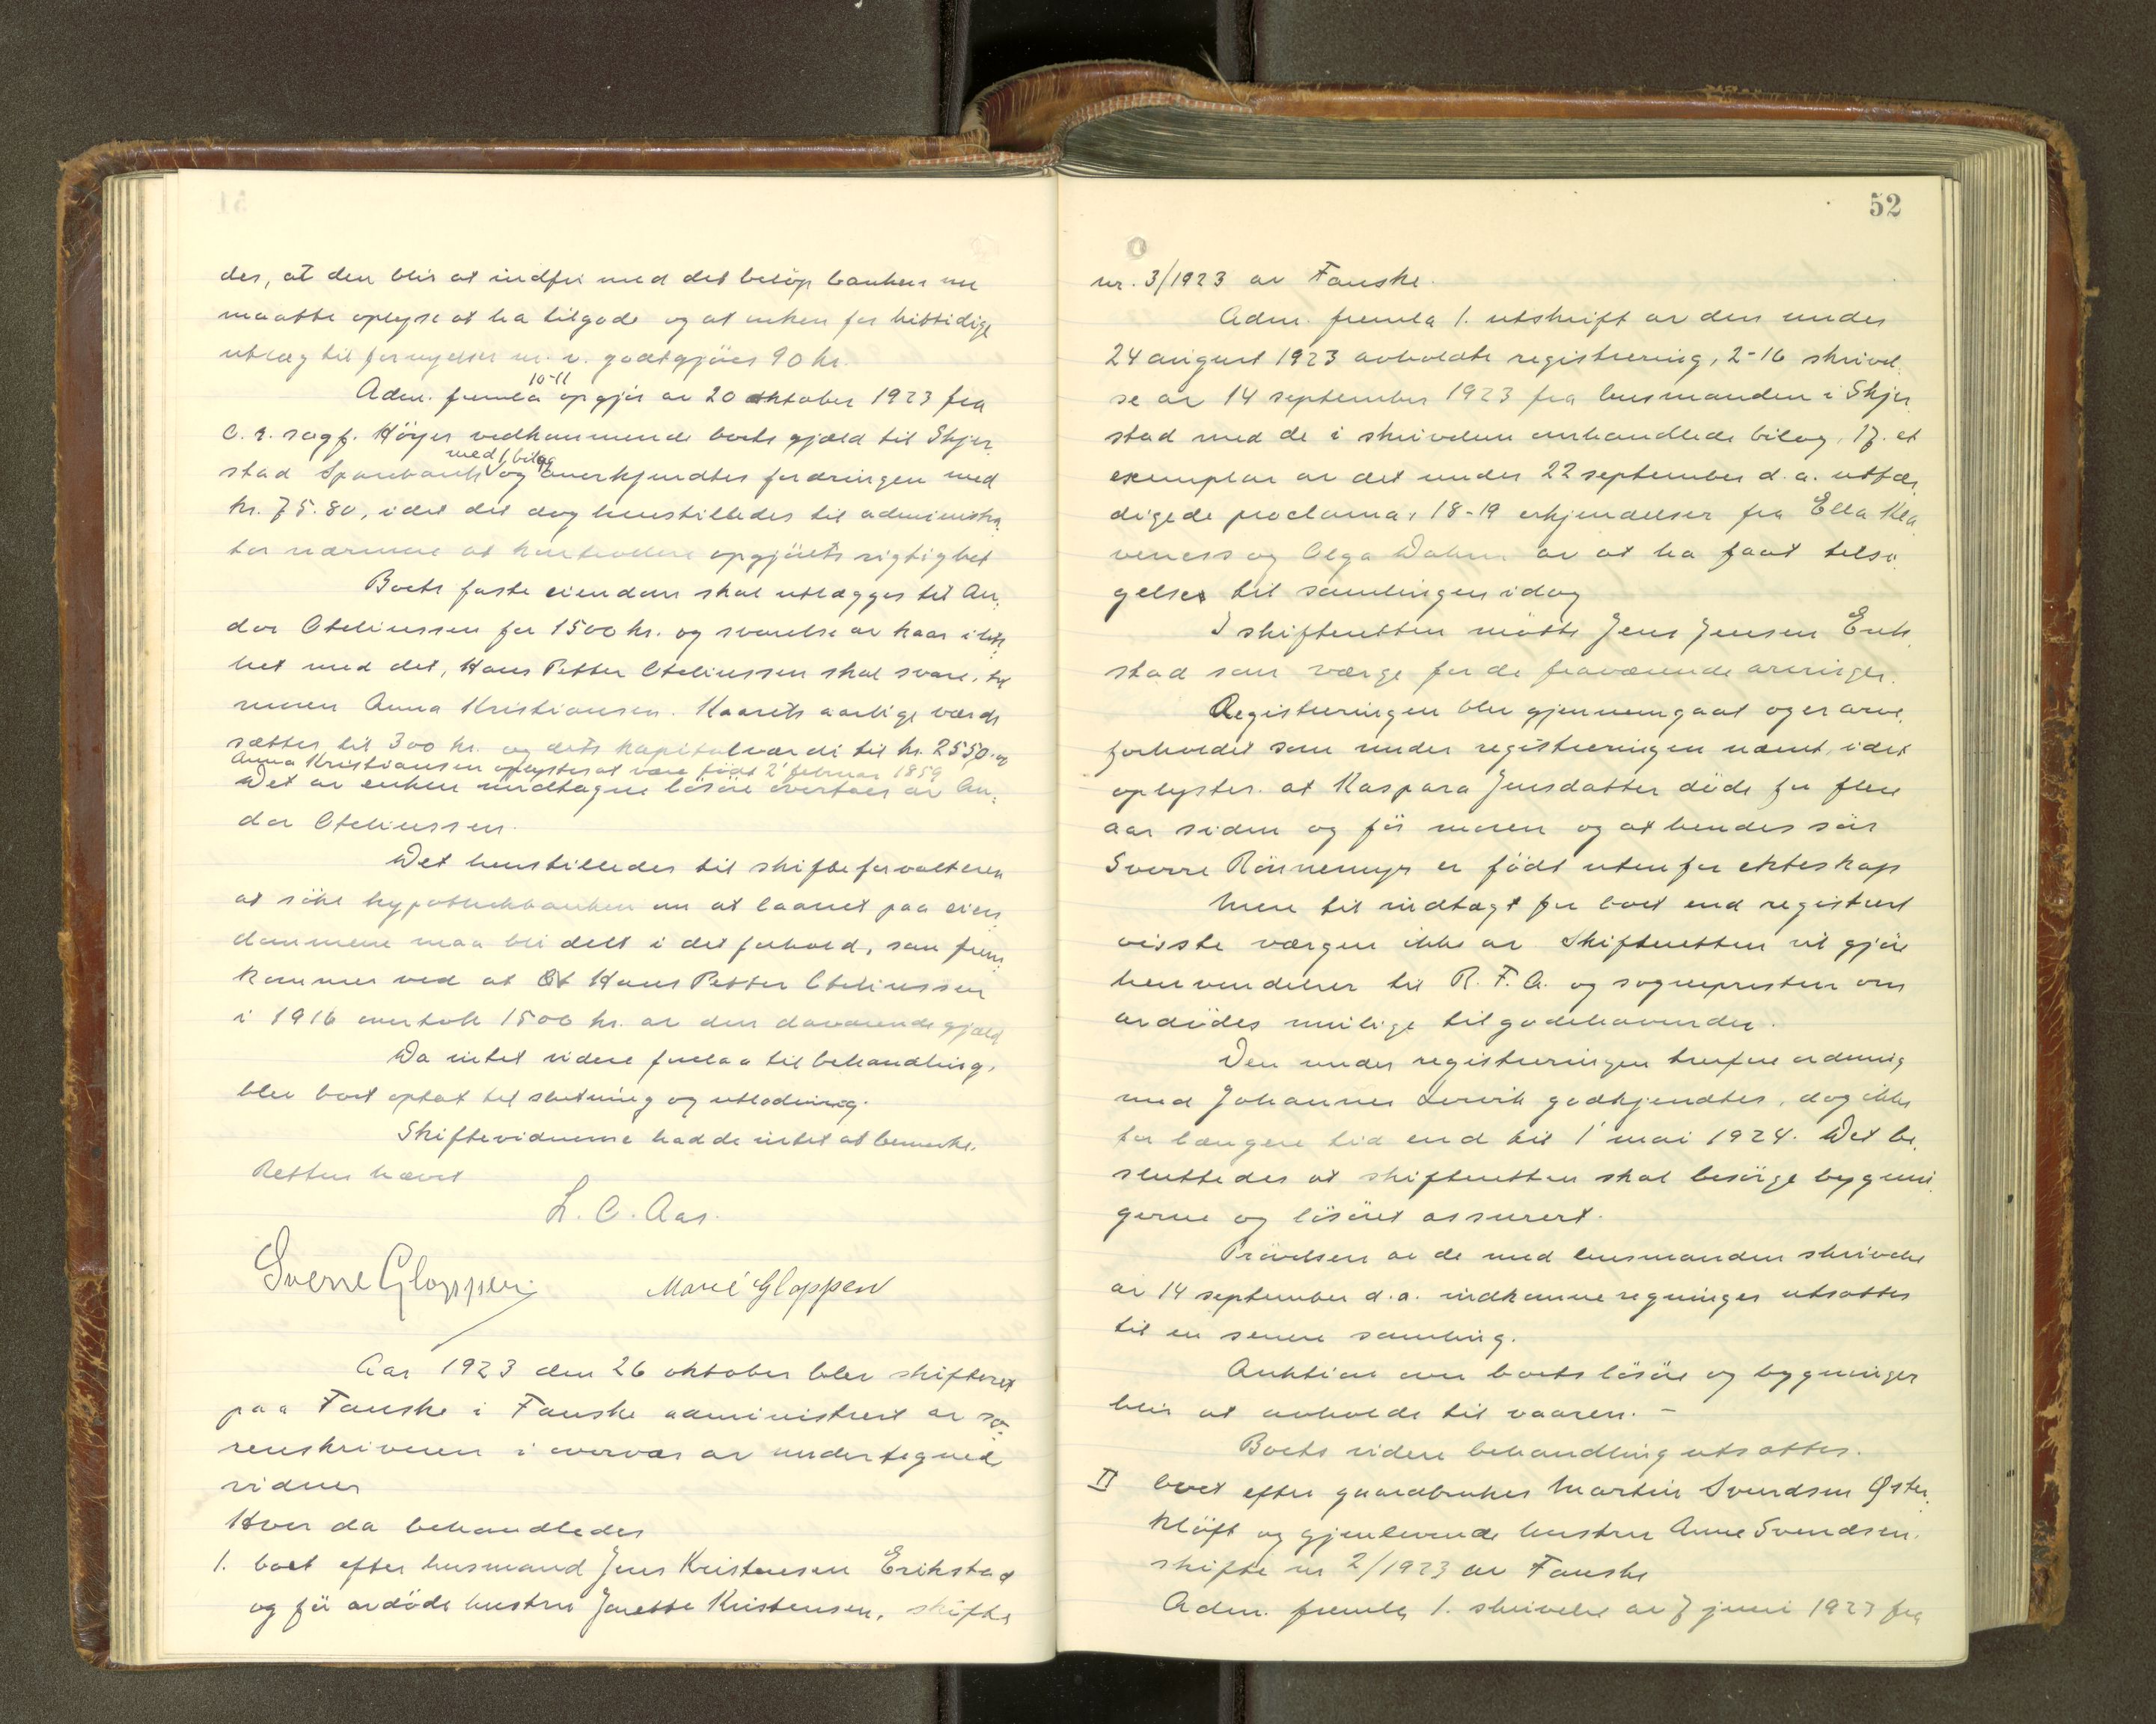 des, at den blir at indfri med det beløp banken nu
maatte oplyse at ha tilgode og at enken for hittidige
utlæg til fornyelser m. v. godtgjöres 90 kr.
Adm. fremla 10-11 opgjör av 20 oktober 1923 fra
o. r. sagf. Höyer vedkommende boets gjæld til Skjer,
stad Sparebank med 1 bilag og anerkjendtes fordringen med
kr. 75.80, idet det dog henstilledes til administra,
tor nærmere at kontrollere opgjörets rigtighet
Boets faste eiendom skal utlægges til An,
dor Oteliussen for 1500 kr. og svarelse av kaar i lik,
het med det, Hans Petter Oteliussen skal svare, til
moren Anna Kristiansen. Kaarets aarlige værdi
sættes til 300 kr. og dets kapitalværdi til kr. 2550. og
Anna Kristiansen oplystes at være födt 2' februar 1859
Det av enken undtagne lösöre overtaes av An,
dor Oteliussen.
Det henstilledes til skifteforvalteren
at söke hypothekbanken om at laanet paa eien,
dommene maa bli delt i det forhold, som frem,
kommer ved at Hans Petter Oteliussen
i 1916 overtok 1500 kr. av den daværende gjæld
Da intet videre forelaa til behandling,
blev boet optat til slutning og utlodning.
Skiftevidnerne hadde intet at bemerke.
Retten hævet
L. C. Aas.
Sverre Gloppen Marie Gloppen
Aar 1923 den 26 oktober blev skifteret
paa Fauske i Fauske administrert av so,
renskriveren i overvær av undertegned
vidner
Hvor da behandledes
1. boet efter husmand Jens Kristensen Erikstad
og för avdöde hustru Janette Kristensen, skifte
52
nr. 3/1923 av Fauske.
Adm. fremla 1. utskrift av den under
24 august 1923 avholdte registrering, 2-16 skrivel,
se av 14 september 1923 fra lensmanden i Skjer,
stad med de i skrivelsen omhandlede bilag, 17. et
exemplar av det under 22 september d. a. utfær,
digede proclama, 18-19 erkjendelser fra Ella Kla
veness og Olga Dahm av at ha faat tilsi,
gelse til samlingen idag
I skifteretten mötte Jens Jensen Erik,
stad som værge for de fraværende arvinger.
Registreringen blev gjennemgaat og er arve,
forholdet som under registreringen nævnt, idet
oplystes at Kaspara Jensdatter döde for flere
aar siden og för moren og at hendes sön
Sverre Rönnemyr er födt utenfor ekteskap
Mere til indtægt for boet end registrert
visste værgen ikke av Skifteretten vil gjöre
henvendelser til R. F. A. og sognepresten om
avdödes mulige tilgodehavender.
Den under registreringen trufne ordning
med Johannes Leivik godkjendtes, dog ikke
for længere tid end til 1' mai 1924. Det be,
sluttedes at skifteretten skal besörge bygnin,
gerne og lösöret assurert.
Prövelsen av de med lensmanden skrivelse
av 14 september d. a. indkomne regninger utsattes
til en senere samling.
Auktion over boets lösöre og bygninger
blir at avholde til vaaren. -
Boets videre behandling utsattes.
II boet efter gaardbruker Martin Svendsen Øster,
klöft og gjenlevende hustru Anne Svendsen.
skifte nr 2/1923 av Fauske
Adm. fremla 1. skrivelse av 7 juni 1923 fra